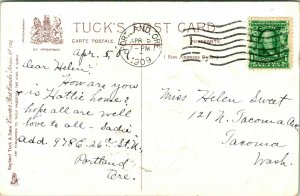 TUCK'S POST CARD
PORTLAND ORE.
APR 5
7-PM
1909
BY APPOINTMENT
(FOR ADDRESS ONLY)
Apr. 5, 8
Dear Helen:
How are you
is Hattie house?
hope all are well
love to all - Sadie
Add. 978 E. 26th St. N.
Portland
Ore.
Miss Helen Sweet
121 N. Tacoma Ave
Tacoma
Wash.
Raphael Tuck & Sons'